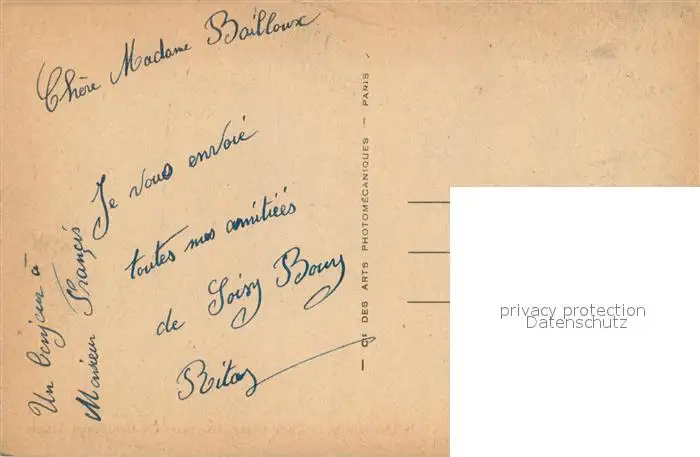 Chère Madame Bailloux
Je vous envoie
toutes mes amitiées
de Soisy Bouy
Rita
Un bonjour à
Monsieur Françis
— Cie DES ARTS PHOTOMÉCANIQUES — PARIS
privacy protection
Datenschutz